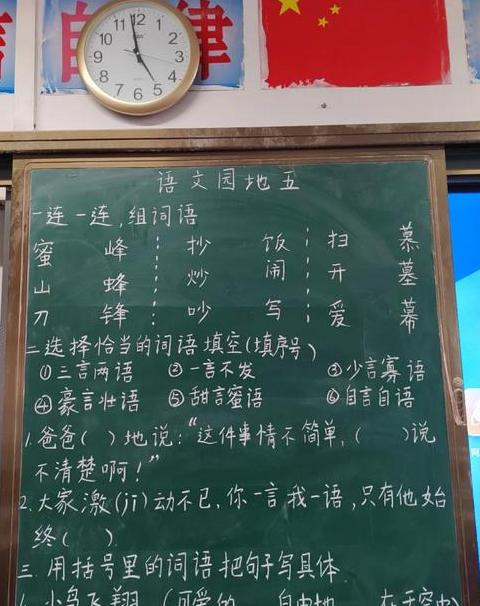 自律
11 12 1
10 2
9 3
8 4
7 6 5
语文园地五
一连一连,组词语
蜜 峰 抄 饭 扫 慕
山 蜂 炒 闹 开 墓
刀 锋 吵 写 爱 幕
二选择恰当的词语填空(填序号)
①三言两语 ②一言不发 ③少言寡语
④豪言壮语 ⑤甜言蜜语 ⑥自言自语
1.爸爸( )地说:“这件事情不简单,( )说
不清楚啊!”
2.大家激(jī)动不已,你一言我一语,只有他始
终( ).
三.用括号里的词语把句子写具体.
1.小鸟飞翔.(可爱的 自由地 在天空中)